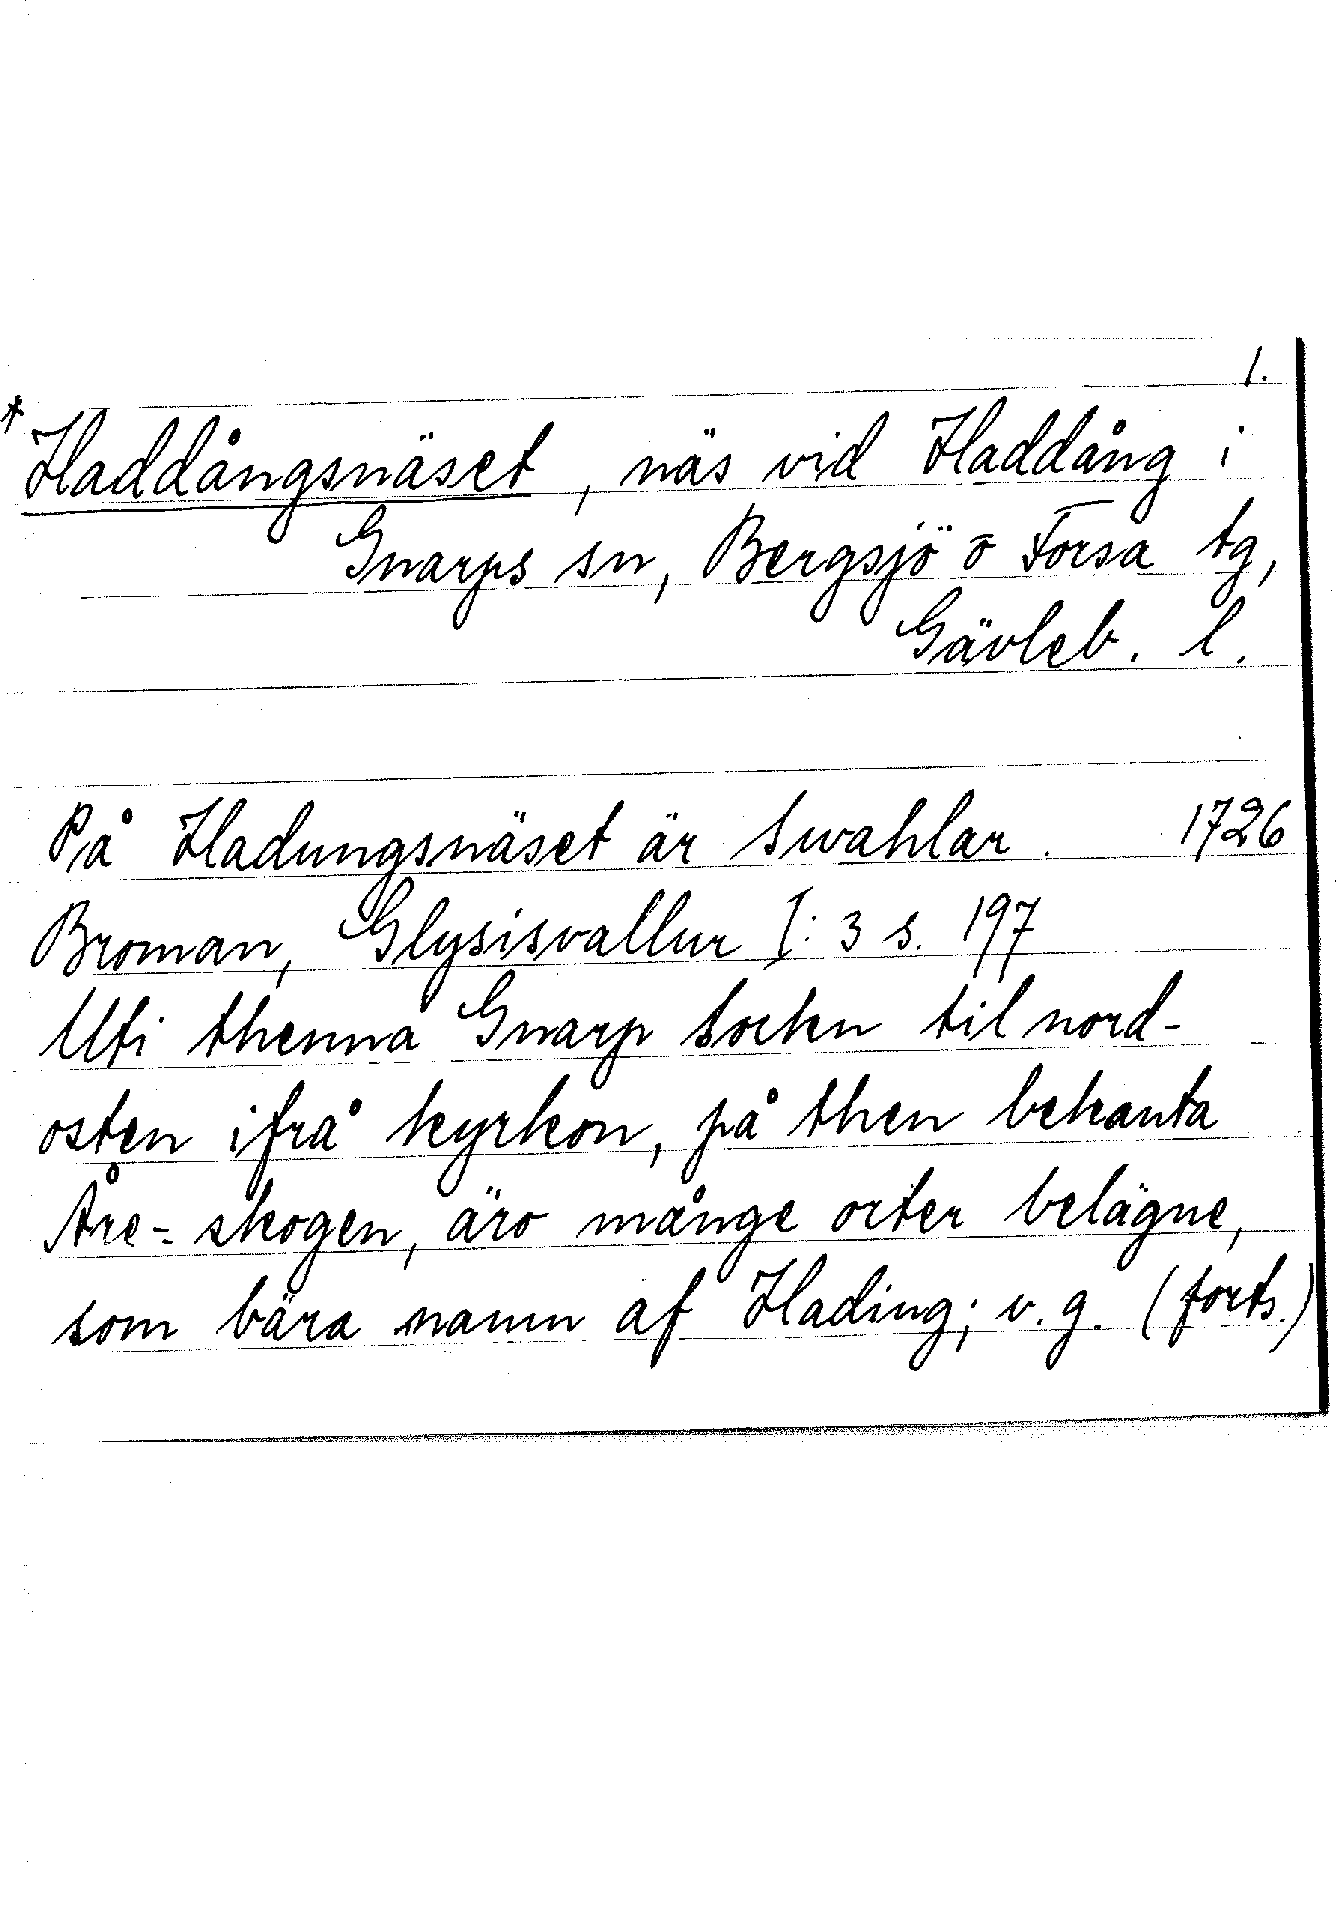 1.
* Haddångsnäset, näs vid Haddång i
Gnarps sn, Bergsjö o Forsa tg,
Gävleb. l.
På Hadungsnäset är Swahlar. 1726
Broman, Glysisvallur I: 3 s. 197
Uti thenna Gnarp Sockn til nord-
osten ifrå kyrkon, på then bekanta
Åre-skogen, äro månge orter belägne,
som bära namn af Hading; v.g. (forts.)